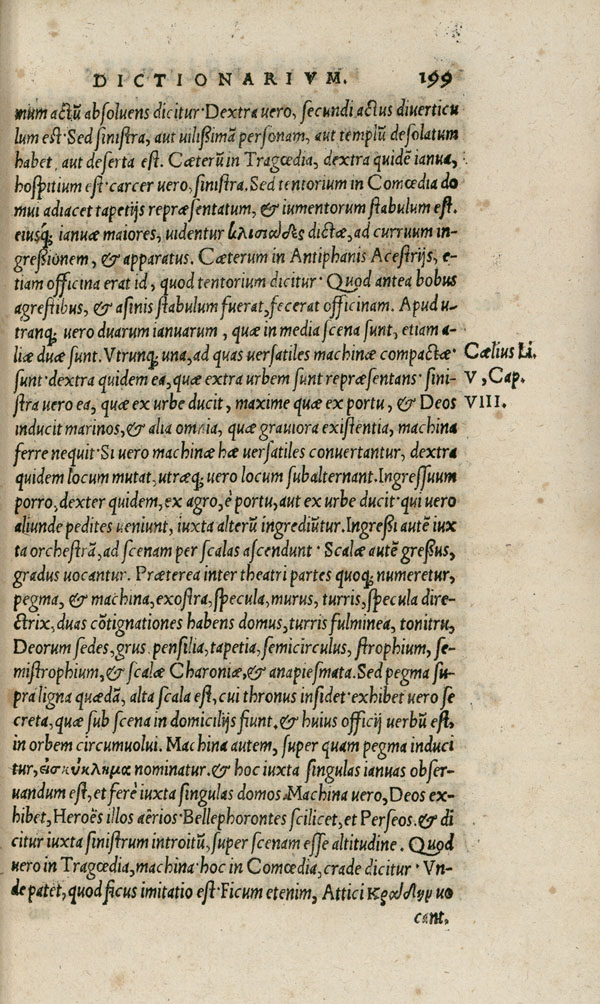 DICTIONARIVM. 199
mum actũ absoluens dicitur·Dextra uero, secundi actus diuerticu
lum est·Sed sinistra, aut uilissimã personam, aut templũ desolatum
habet aut deserta est. Cæterũ in Tragœdia, dextra quidẽ ianua,
hospitium est·carcer uero, sinistra. Sed tentorium in Comœdia do
mui adiacet tapetijs repræsentatum, & iumentorum stabulum est.
eiusq; ianuæ maiores, uidentur κλισιάδες dictæ, ad curruum in-
gressionem, & apparatus. Cæterum in Antiphanis Acestrijs, e-
tiam officina erat id, quod tentorium dicitur· Quod antea bobus
agrestibus, & asinis stabulum fuerat, fecerat officinam. Apud u-
tranq; uero duarum ianuarum, quæ in media scena sunt, etiam a-
liæ duæ sunt. Vtrunq; una, ad quas uersatiles machinæ compactæ· Cælius Li.
sunt·dextra quidem ea, quæ extra urbem sunt repræsentans· sini- V, Cap.
stra uero ea, quæ ex urbe ducit, maxime quæ ex portu, & Deos VIII.
inducit marinos, & alia omnia, quæ grauiora existentia, machina
ferre nequit·Si uero machinæ hæ uersatiles conuertantur, dextra
quidem locum mutat, utræq; uero locum subalternant. Ingressuum
porro, dexter quidem, ex agro, è portu, aut ex urbe ducit·qui uero
aliunde pedites ueniunt, iuxta alterũ ingrediũtur. Ingreßi autẽ iux
ta orchestrã, ad scenam per scalas ascendunt· Scalæ autẽ greßus,
gradus uocantur. Præterea inter theatri partes quoq; numeretur,
pegma, & machina, exostra, specula, murus, turris, specula dire-
ctrix, duas cõtignationes habens domus, turris fulminea, tonitru,
Deorum sedes, grus pensilia, tapetia, semicirculus, strophium, se-
mistrophium, & scalæ Charoniæ, & anapiesmata. Sed pegma su-
pra ligna quædã, alta scala est, cui thronus insidet·exhibet uero se
creta, quæ sub scena in domicilijs fiunt. & huius officij uerbũ est,
in orbem circumuolui. Machina autem, super quam pegma induci
tur, εἰσκύκλημα nominatur. & hoc iuxta singulas ianuas obser-
uandum est, et ferè iuxta singulas domos. Machina uero, Deos ex-
hibet, Heroës illos aërios·Bellephorontes scilicet, et Perseos. & di
citur iuxta sinistrum introitũ, super scenam esse altitudine. Quod
uero in Tragœdia, machina·hoc in Comœdia, crade dicitur· Vn-
de patet, quod ficus imitatio est·Ficum etenim, Attici uo
cant.